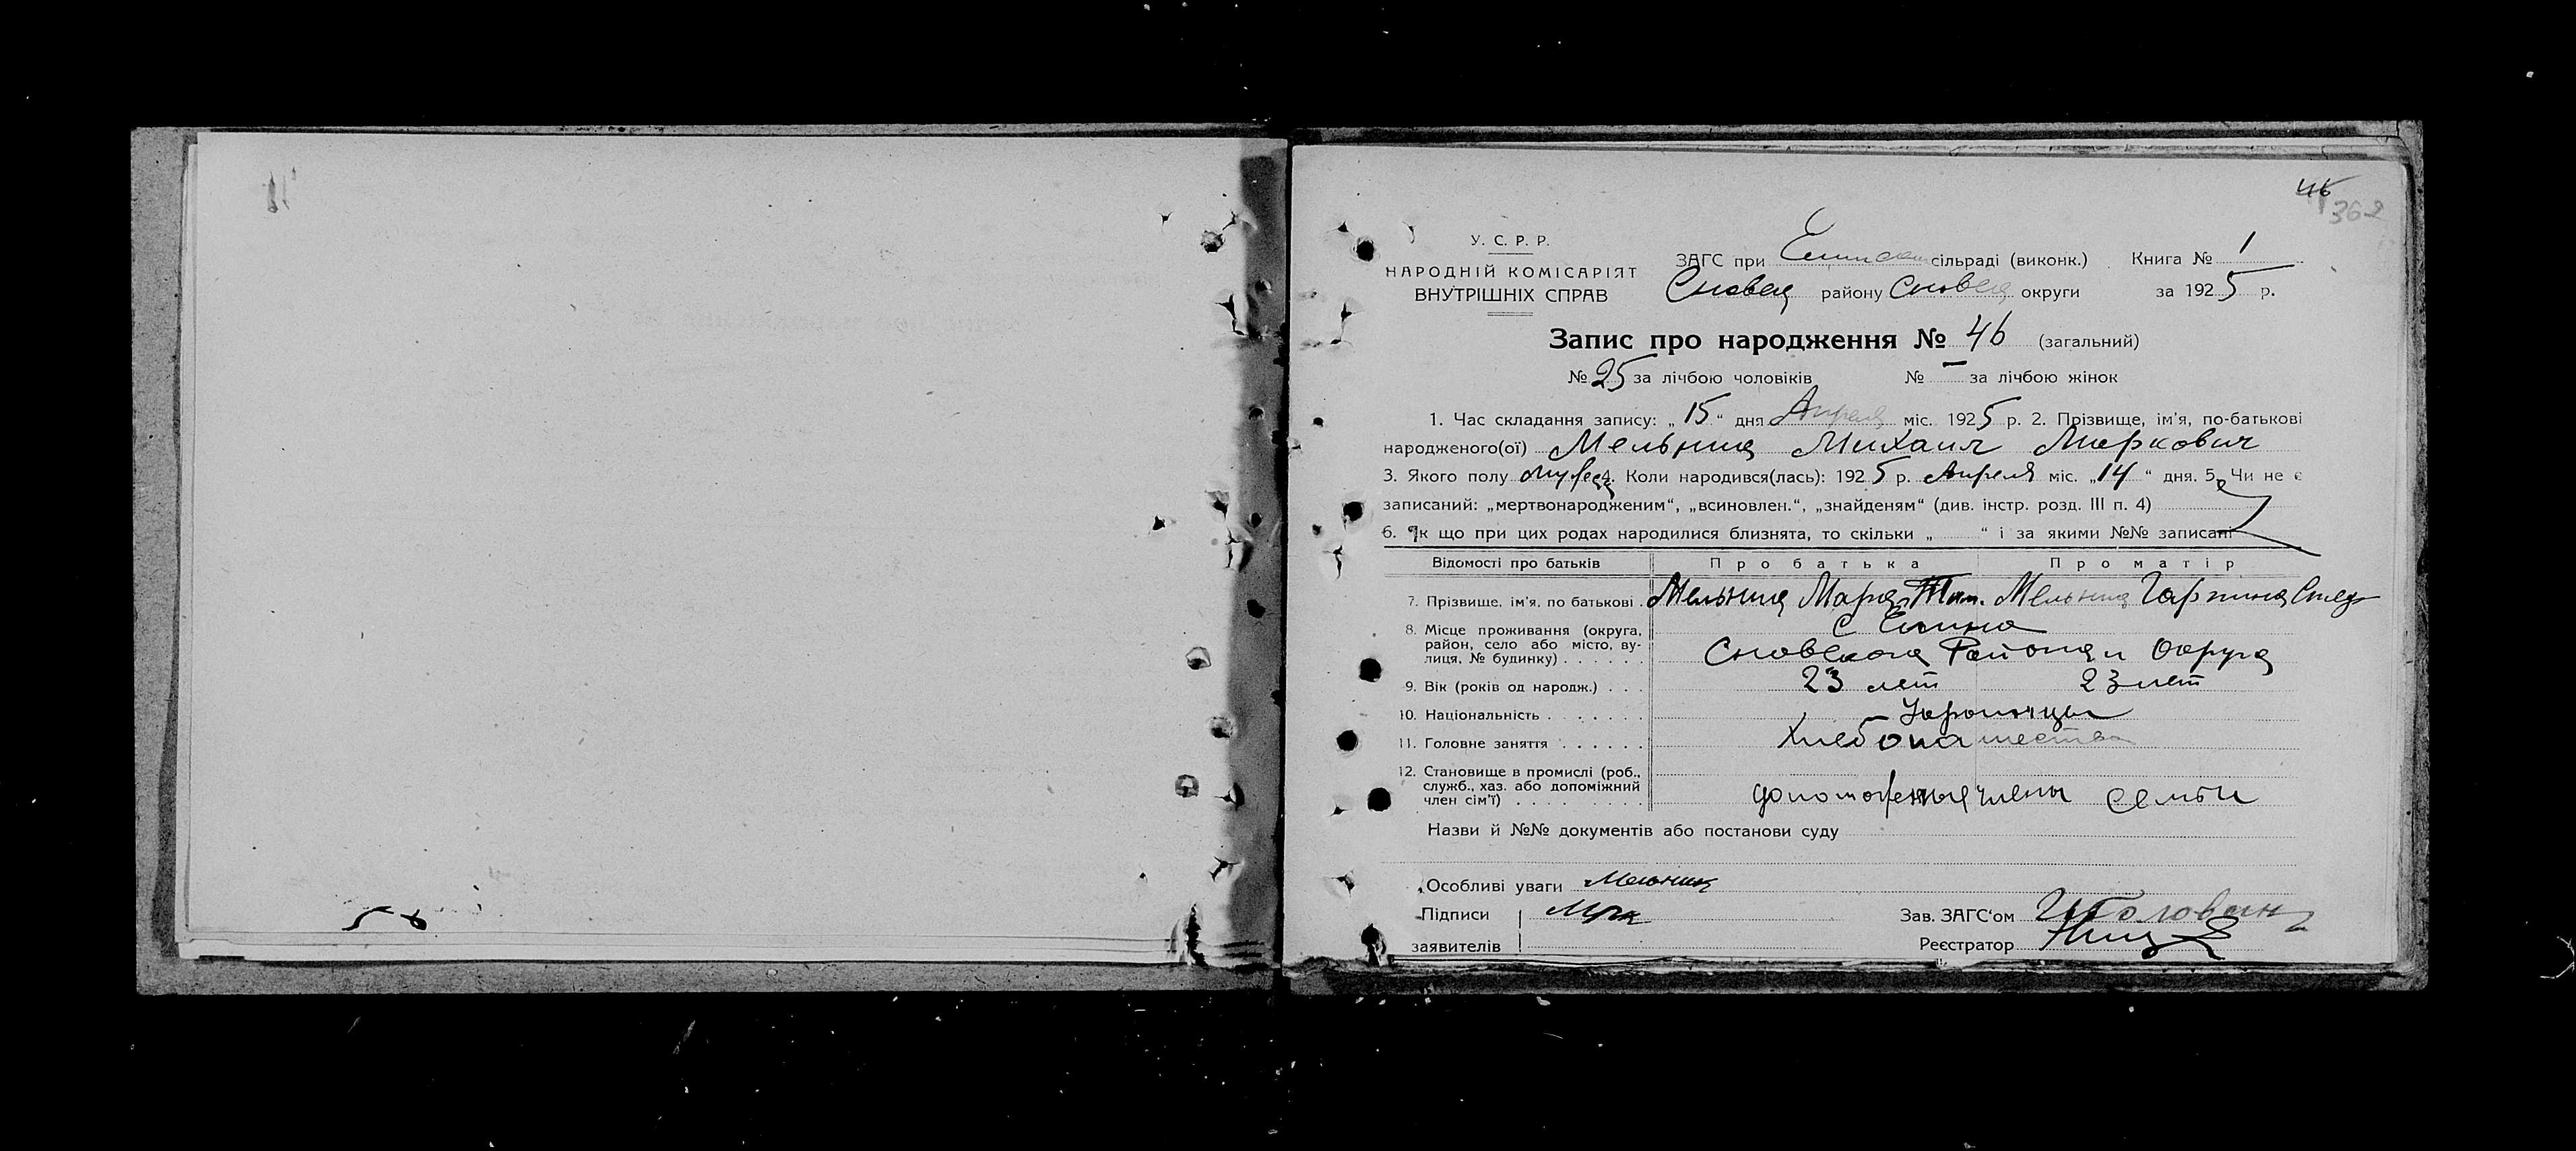 46
362
У. С. Р. Р.
НАРОДНІЙ КОМІСАРІЯТ
ВНУТРІШНІХ СПРАВ
ЗАГС при сільраді (виконк.) Книга № 1
району округи за 1925 р.
Запис про народження № 46 (загальний)
№ 25 за лічбою чоловіків № — за лічбою жінок
1. Час складання запису: „15“ дня Апреля міс. 1925 р. 2. Прізвище, ім'я, по-батькові
народженого(ої) Мельник Михаил Маркович
3. Якого полу 4. Коли народився(лась): 1925 р. Апреля міс. „14“ дня. 5. Чи не є
записаний: „мертвонародженим“, „всиновлен.“, „знайденям“ (див. інстр. розд. III п. 4)
6. Як що при цих родах народилися близнята, то скільки „ “ і за якими №№ записані
Відомості про батьків Про батька Про матір
7. Прізвище, ім'я, по батькові Мельник Марк Мельник
8. Місце проживання (округа, район, село або місто, вулиця, № будинку) с Елино
Сновского Района и Округа
9. Вік (років од народж.) 23 лет 23 лет
10. Національність Украинцы
11. Головне заняття Хлебопашество
12. Становище в промислі (роб., служб., хаз. або допоміжний член сім'ї) члены семьи
Назви й №№ документів або постанови суду
Особливі уваги Мельник
Підписи Зав. ЗАГС'ом
заявителів Реєстратор